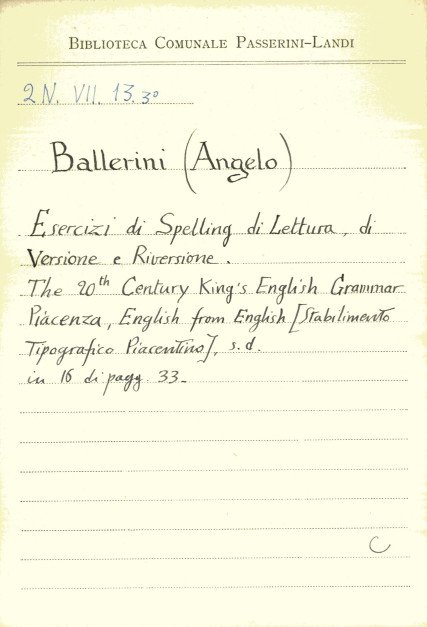 BIBLIOTECA COMUNALE PASSERINI-LANDI
2N. VII. 13. 3º
Ballerini (Angelo)
Esercizi di Spelling di Lettura, di
Versione e Riversione.
The 20th Century King's English Grammar
Piacenza, English from English [Stabilimento
Tipografico Piacentino], s. d.
in 16 di pagg. 33-
C